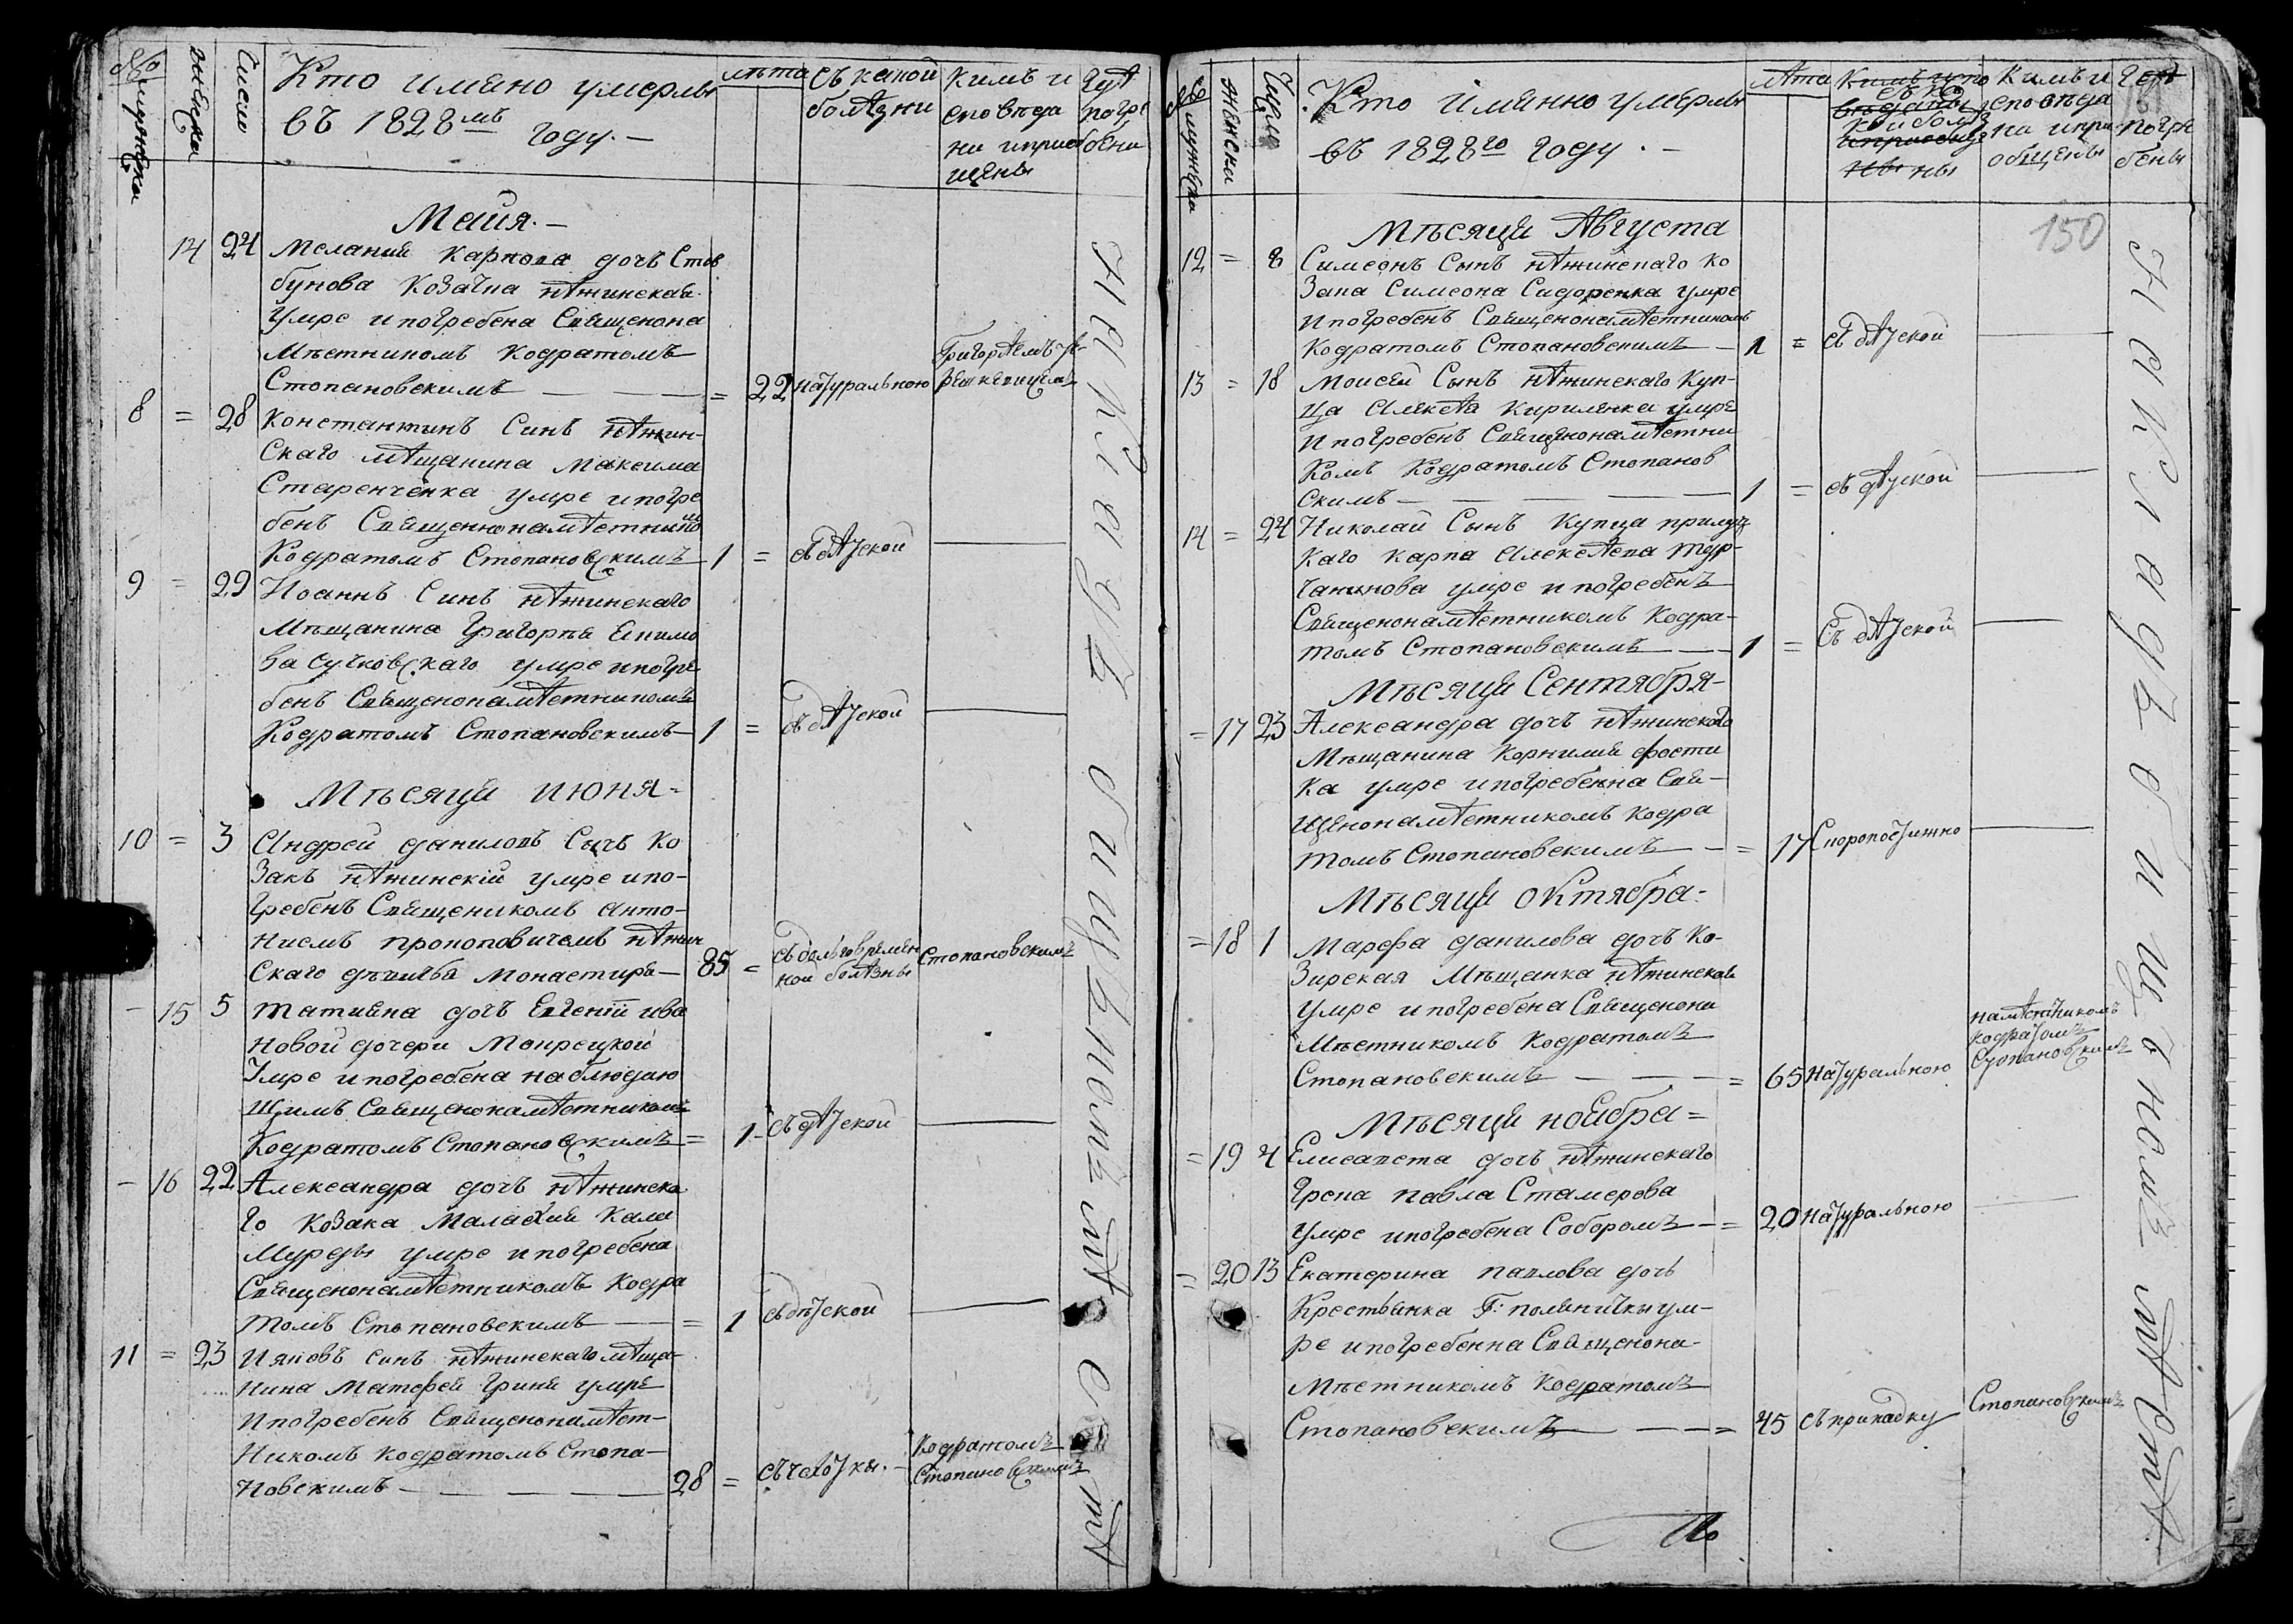 №
мужеска
женска
Число
Кто имяно умерлы
въ 1828мъ году. —
лѣта
Съ какой
болѣзни
кимъ и
сповѣда
ни и приоб
щены
Гдѣ
погре
бени
Маия. —
14 24 Мелания Карпова дочъ Стов
бунова Козачка нѣжинская
умре и погребена Священона
мѣстникомъ Кодратомъ
Стопановскимъ — — — = 22 натуральною
Григорiемъ
8 = 28 Константинъ Синъ нѣжин-
скаго мѣщанина Максима
Старенченка умре и погре
бенъ Священнонамѣстником
Кодратомъ Стопановскимъ 1 = съ дѣтской —
9 = 29 Иоаннъ Синъ нѣжинскаго
Мѣщанина Григорѣя Екимо
ва Сучковскаго умре и погре
бенъ Священонамѣстникомъ
Кодратомъ Стопановскимъ — 1 = съ дѣтской —
Мѣсяця июня =
10 = 3 Андрей Даниловъ Сычъ Ко
закъ нѣжинскiй умре и по-
гребенъ Священикомъ Анто-
ниемъ Прокоповичемъ нѣжин
скаго дѣвичья Монастиря — 85 = съ долговремен
ной болѣзны
Стопановскимъ
— 15 5 Татияна дочъ Евгенiи ива
новой дочери Мокрецкой
умре и погребена наблюдаю
щимъ Священонамѣстникомъ
Кодратомъ Стопановскимъ = 1 - съ дѣтской —
— 16 22 Александра дочъ нѣжинска
го козака Малахия Кала
Мурезы умре и погребена
Священонамѣстникомъ Кодра
томъ Стопановскимъ — = 1 съ дѣтской —
11 = 23 Ияковъ синъ нѣжинскаго мѣща-
нина Матфея Гриня умре
и погребенъ Священонамѣст-
никомъ Кодратомъ Стопа-
новскимъ — — — — 28 = съ чахотки. —
Кодратомъ
Стопановскимъ
На кладъбищѣ томъ мѣстѣ
№
мужеска
женски
Число
Кто имянно умерлы
въ 1828го году. —
лѣта
Кимъ
съ ка
кой болѣз
ны
Кимъ и
сповѣда
ни и при
общены
Гдѣ
погре
бены
150
Мѣсяця Августа
12 = 8 Симеонъ Сынъ нѣжинскаго ко
зака Симеона Сидоренка умре
и погребенъ Священонамѣстникомъ
Кодратомъ Стопановскимъ — 1 = съ дѣтской —
13 = 18 Моисей Сынъ нѣжинскаго Куп-
ца Алексѣя Кириленка умре
и погребенъ Священонамѣстни
комъ Кодратомъ Стопанов
скимъ — — — — 1 = съ дѣтской —
14 = 24 Николай Сынъ Купца прилуц
каго Карпа Алексѣева Тур-
чанинова умре и погребенъ
Священонамѣстникомъ Кодра-
томъ Стопановскимъ — — 1 = Съ дѣтской —
Мѣсяця Сентября —
= 17 23 Александра дочъ нѣжинского
Мѣщанина Корнилия фости
ка умре и погребенна Свя-
щенонамѣстникомъ Кодра
томъ Стопановскимъ — = 17 Скоропостижно —
Мѣсяця октября =
= 18 1 Марфа Данилова дочъ Ко-
зирская Мѣщанка нѣжинская
умре и погребена Священона
мѣстникомъ Кодратомъ
Стопановскимъ — — = 65 натуральною
намѣстникомъ
Кодратомъ
Стопановскимъ
Мѣсяця ноября =
= 19 4 Елисавета дочъ нѣжинскаго
Грека Павла Стамерова
умре и погребена Соборомъ — = 20 натуральною —
= 20 13 Екатерина Павлова дочъ
Крестьянка Г: полянички ум-
ре и погребенна Священона-
мѣстникомъ Кодратомъ
Стопановскимъ — — = 45 съ припадку
Стопановскимъ
На кладъбищномъ мѣстѣ